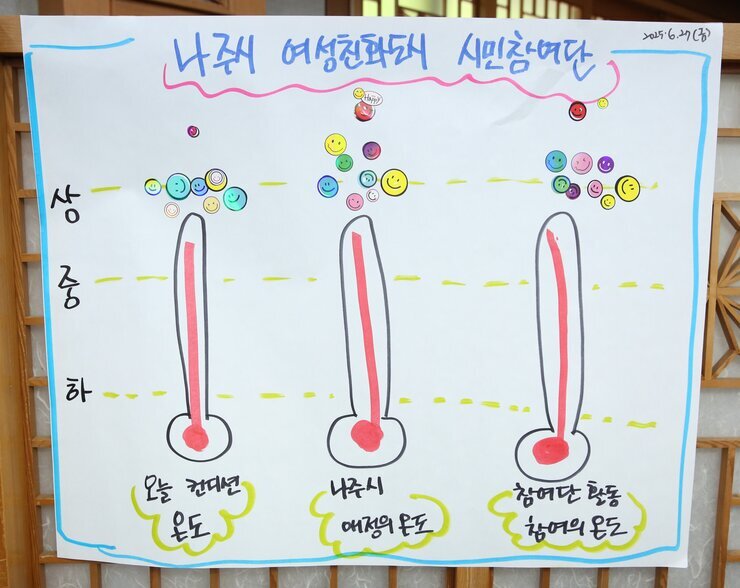 나주시 여성친화도시 시민참여단
2025.6.27(금)
Happy!
상
중
하
오늘 컨디션
온도
나주시
애정의 온도
참여단 활동
참여의 온도